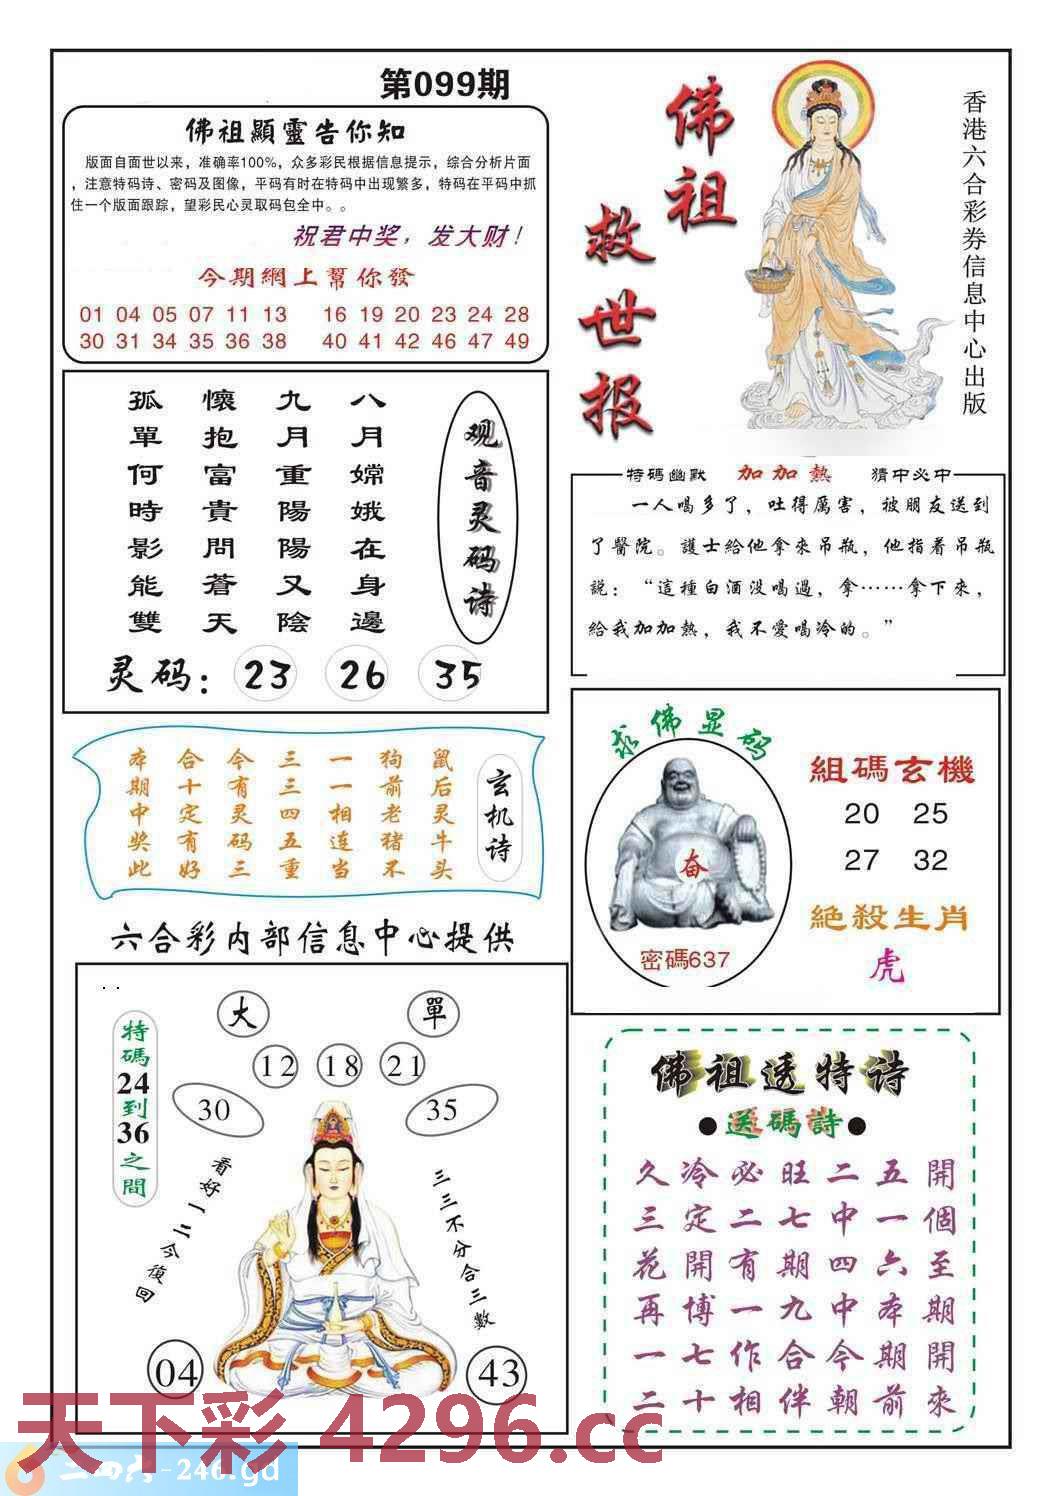 第099期
佛祖顯靈告你知
版面自面世以来，准确率100%，众多彩民根据信息提示，综合分析片面
，注意特码诗、密码及图像，平码有时在特码中出现繁多，特码在平码中抓
住一个版面跟踪，望彩民心灵取码包全中。。
祝君中奖，发大财！
今期網上幫你發
01 04 05 07 11 13 16 19 20 23 24 28
30 31 34 35 36 38 40 41 42 46 47 49
佛祖
救世报
香港六合彩券信息中心出版
观音灵码诗
八月嫦娥在身邊
九月重陽陽又陰
懷抱富貴問蒼天
孤單何時影能雙
灵码：23 26 35
特碼幽默 加加熱 猜中必中
一人喝多了，吐得厲害，被朋友送到
了醫院。護士給他拿來吊瓶，他指着吊瓶
説：“這種白酒没喝過，拿……拿下來，
給我加加熱，我不愛喝冷的。”
玄机诗
鼠后灵牛头
狗前老猪不
一一相连当
三三四五重
今有灵码三
合十定有好
本期中奖此
求佛显码
奋
密碼637
組碼玄機
20 25
27 32
絕殺生肖
虎
六合彩内部信息中心提供
特碼24到36之間
大 單
12 18 21
30 35
看好一二今復回
三三不分合三數
04 43
佛祖透特诗
●送碼詩●
久冷必旺二五開
三定二七中一個
花開有期四六至
再博一九中本期
一七作合今期開
二十相伴朝前來
天下彩 4296.cc
二四六-246.gd